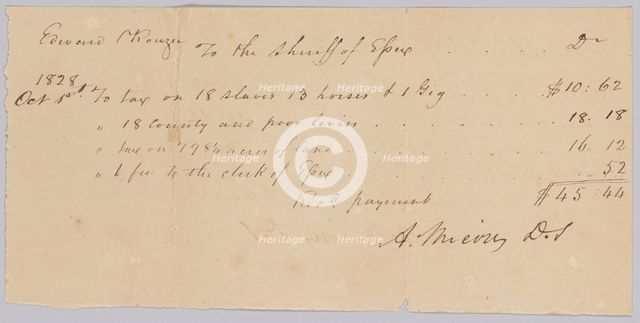 Edward Rouzee To the Sheriff of Essex . . . . . Dr
1828
Oct 1st To tax on 18 slaves 13 horses & 1 Gig . . . $10:62
" 18 county and poor levies . . . . . . 18.18
" tax on 798½ acres of land . . . . 16..12
" to the clerk of Essex . . . . . 52
Recd. payment $45:44
A. Micou, D.S
Heritage
Heritage
Heritage
Heritage
Heritage
Heritage
Heritage
C